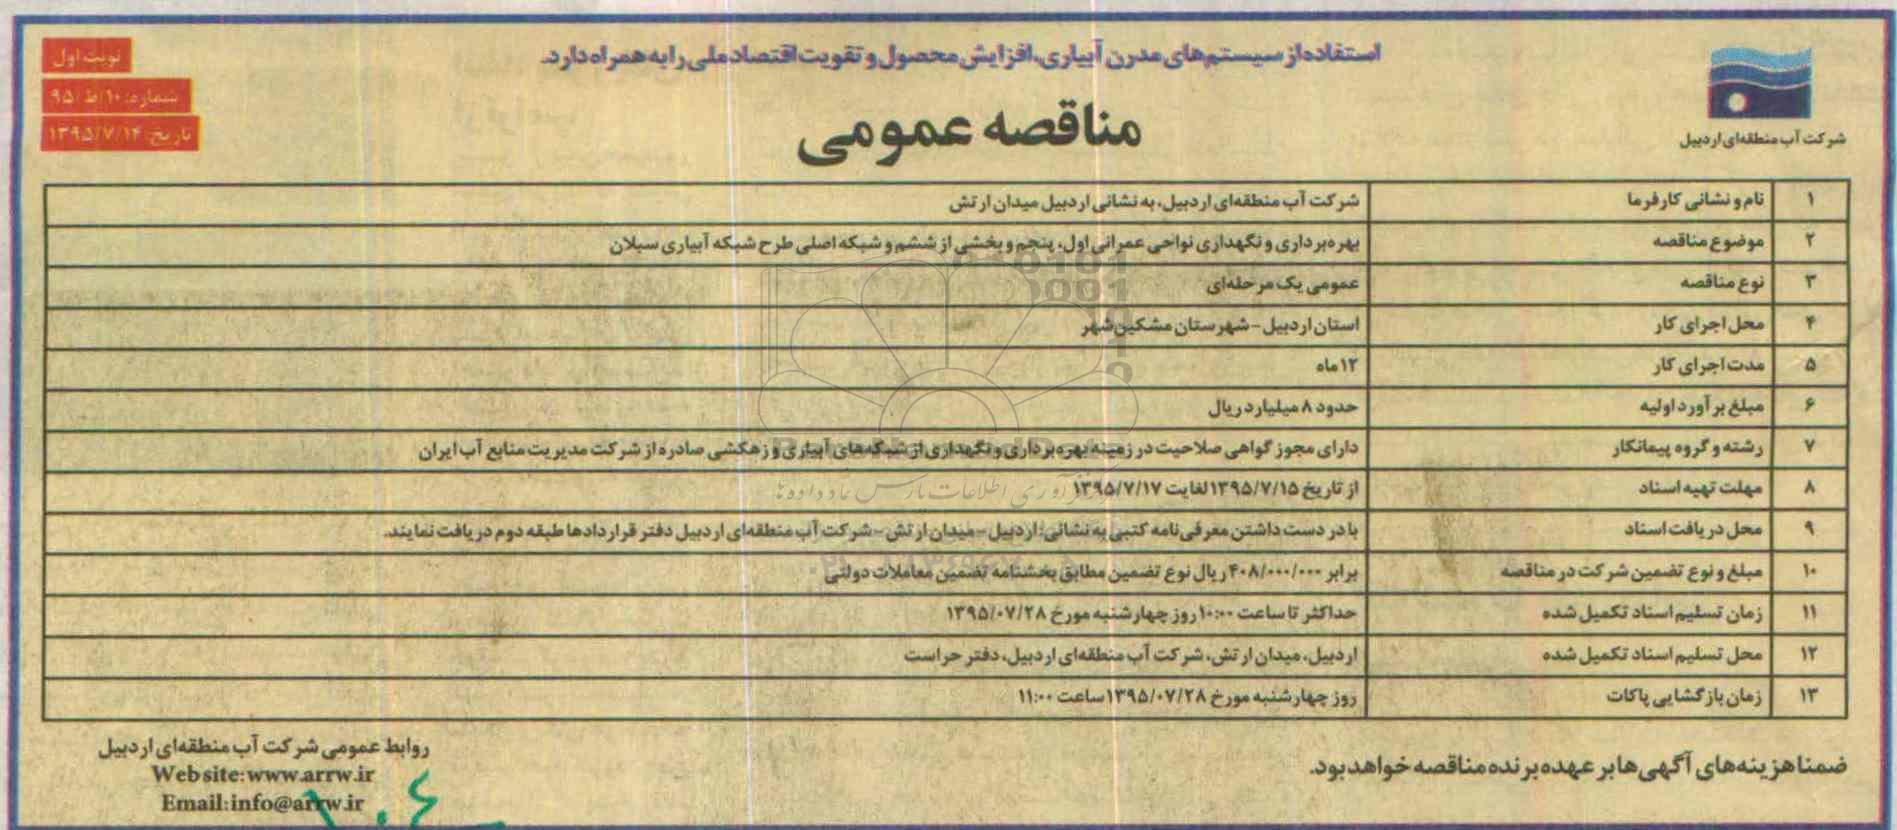 استفاده از سیستم‌های مدرن آبیاری، افزایش محصول و تقویت اقتصاد ملی را به همراه دارد.
نوبت اول
شماره: ۱۰/ط/۹۵
تاریخ: ۱۳۹۵/۷/۱۴
شرکت آب منطقه‌ای اردبیل
مناقصه عمومی
۱ نام و نشانی کارفرما شرکت آب منطقه‌ای اردبیل، به نشانی اردبیل میدان ارتش
۲ موضوع مناقصه بهره‌برداری و نگهداری نواحی عمرانی اول، پنجم و بخشی از ششم و شبکه اصلی طرح شبکه آبیاری سبلان
۳ نوع مناقصه عمومی یک مرحله‌ای
۴ محل اجرای کار استان اردبیل - شهرستان مشکین‌شهر
۵ مدت اجرای کار ۱۲ ماه
۶ مبلغ برآورد اولیه حدود ۸ میلیارد ریال
۷ رشته و گروه پیمانکار دارای مجوز گواهی صلاحیت در زمینه بهره‌برداری و نگهداری از شبکه‌های آبیاری و زهکشی صادره از شرکت مدیریت منابع آب ایران
۸ مهلت تهیه اسناد از تاریخ ۱۳۹۵/۷/۱۵ لغایت ۱۳۹۵/۷/۱۷
۹ محل دریافت اسناد با در دست داشتن معرفی‌نامه کتبی به نشانی: اردبیل - میدان ارتش - شرکت آب منطقه‌ای اردبیل دفتر قراردادها طبقه دوم دریافت نمایند.
۱۰ مبلغ و نوع تضمین شرکت در مناقصه برابر ۴۰۸/۰۰۰/۰۰۰ ریال نوع تضمین مطابق بخشنامه تضمین معاملات دولتی
۱۱ زمان تسلیم اسناد تکمیل شده حداکثر تا ساعت ۱۰:۰۰ روز چهارشنبه مورخ ۱۳۹۵/۰۷/۲۸
۱۲ محل تسلیم اسناد تکمیل شده اردبیل، میدان ارتش، شرکت آب منطقه‌ای اردبیل، دفتر حراست
۱۳ زمان بازگشایی پاکات روز چهارشنبه مورخ ۱۳۹۵/۰۷/۲۸ ساعت ۱۱:۰۰
ضمنا هزینه‌های آگهی‌ها بر عهده برنده مناقصه خواهد بود.
روابط عمومی شرکت آب منطقه‌ای اردبیل
Website:www.arrw.ir
Email:info@arrw.ir